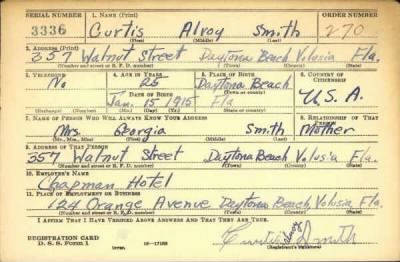 SERIAL NUMBER 1. NAME (Print) ORDER NUMBER
3336 Curtis Alroy Smith 270
(First) (Middle) (Last)
2. ADDRESS (Print)
357 Walnut Street Daytona Beach Volusia Fla.
(Number and street or R. F. D. number) (Town) (County) (State)
3. TELEPHONE 4. AGE IN YEARS 5. PLACE OF BIRTH 6. COUNTRY OF CITIZENSHIP
No 25 Daytona Beach
DATE OF BIRTH (Town or county)
Jan. 15 1915 Fla U.S.A.
(Exchange) (Number) (Mo.) (Day) (Yr.) (State or country)
7. NAME OF PERSON WHO WILL ALWAYS KNOW YOUR ADDRESS 8. RELATIONSHIP OF THAT PERSON
Mrs. Georgia Smith Mother
(Mr., Mrs., Miss) (First) (Middle) (Last)
9. ADDRESS OF THAT PERSON
357 Walnut Street Daytona Beach Volusia Fla.
(Number and street or R. F. D. number) (Town) (County) (State)
10. EMPLOYER'S NAME
Chapman Hotel
11. PLACE OF EMPLOYMENT OR BUSINESS
124 Orange Avenue Daytona Beach Volusia Fla.
(Number and street or R. F. D. number) (Town) (County) (State)
I AFFIRM THAT I HAVE VERIFIED ABOVE ANSWERS AND THAT THEY ARE TRUE.
REGISTRATION CARD
D. S. S. Form 1 (over) 16-17105 Curtis Alroy Smith
(Registrant's signature)